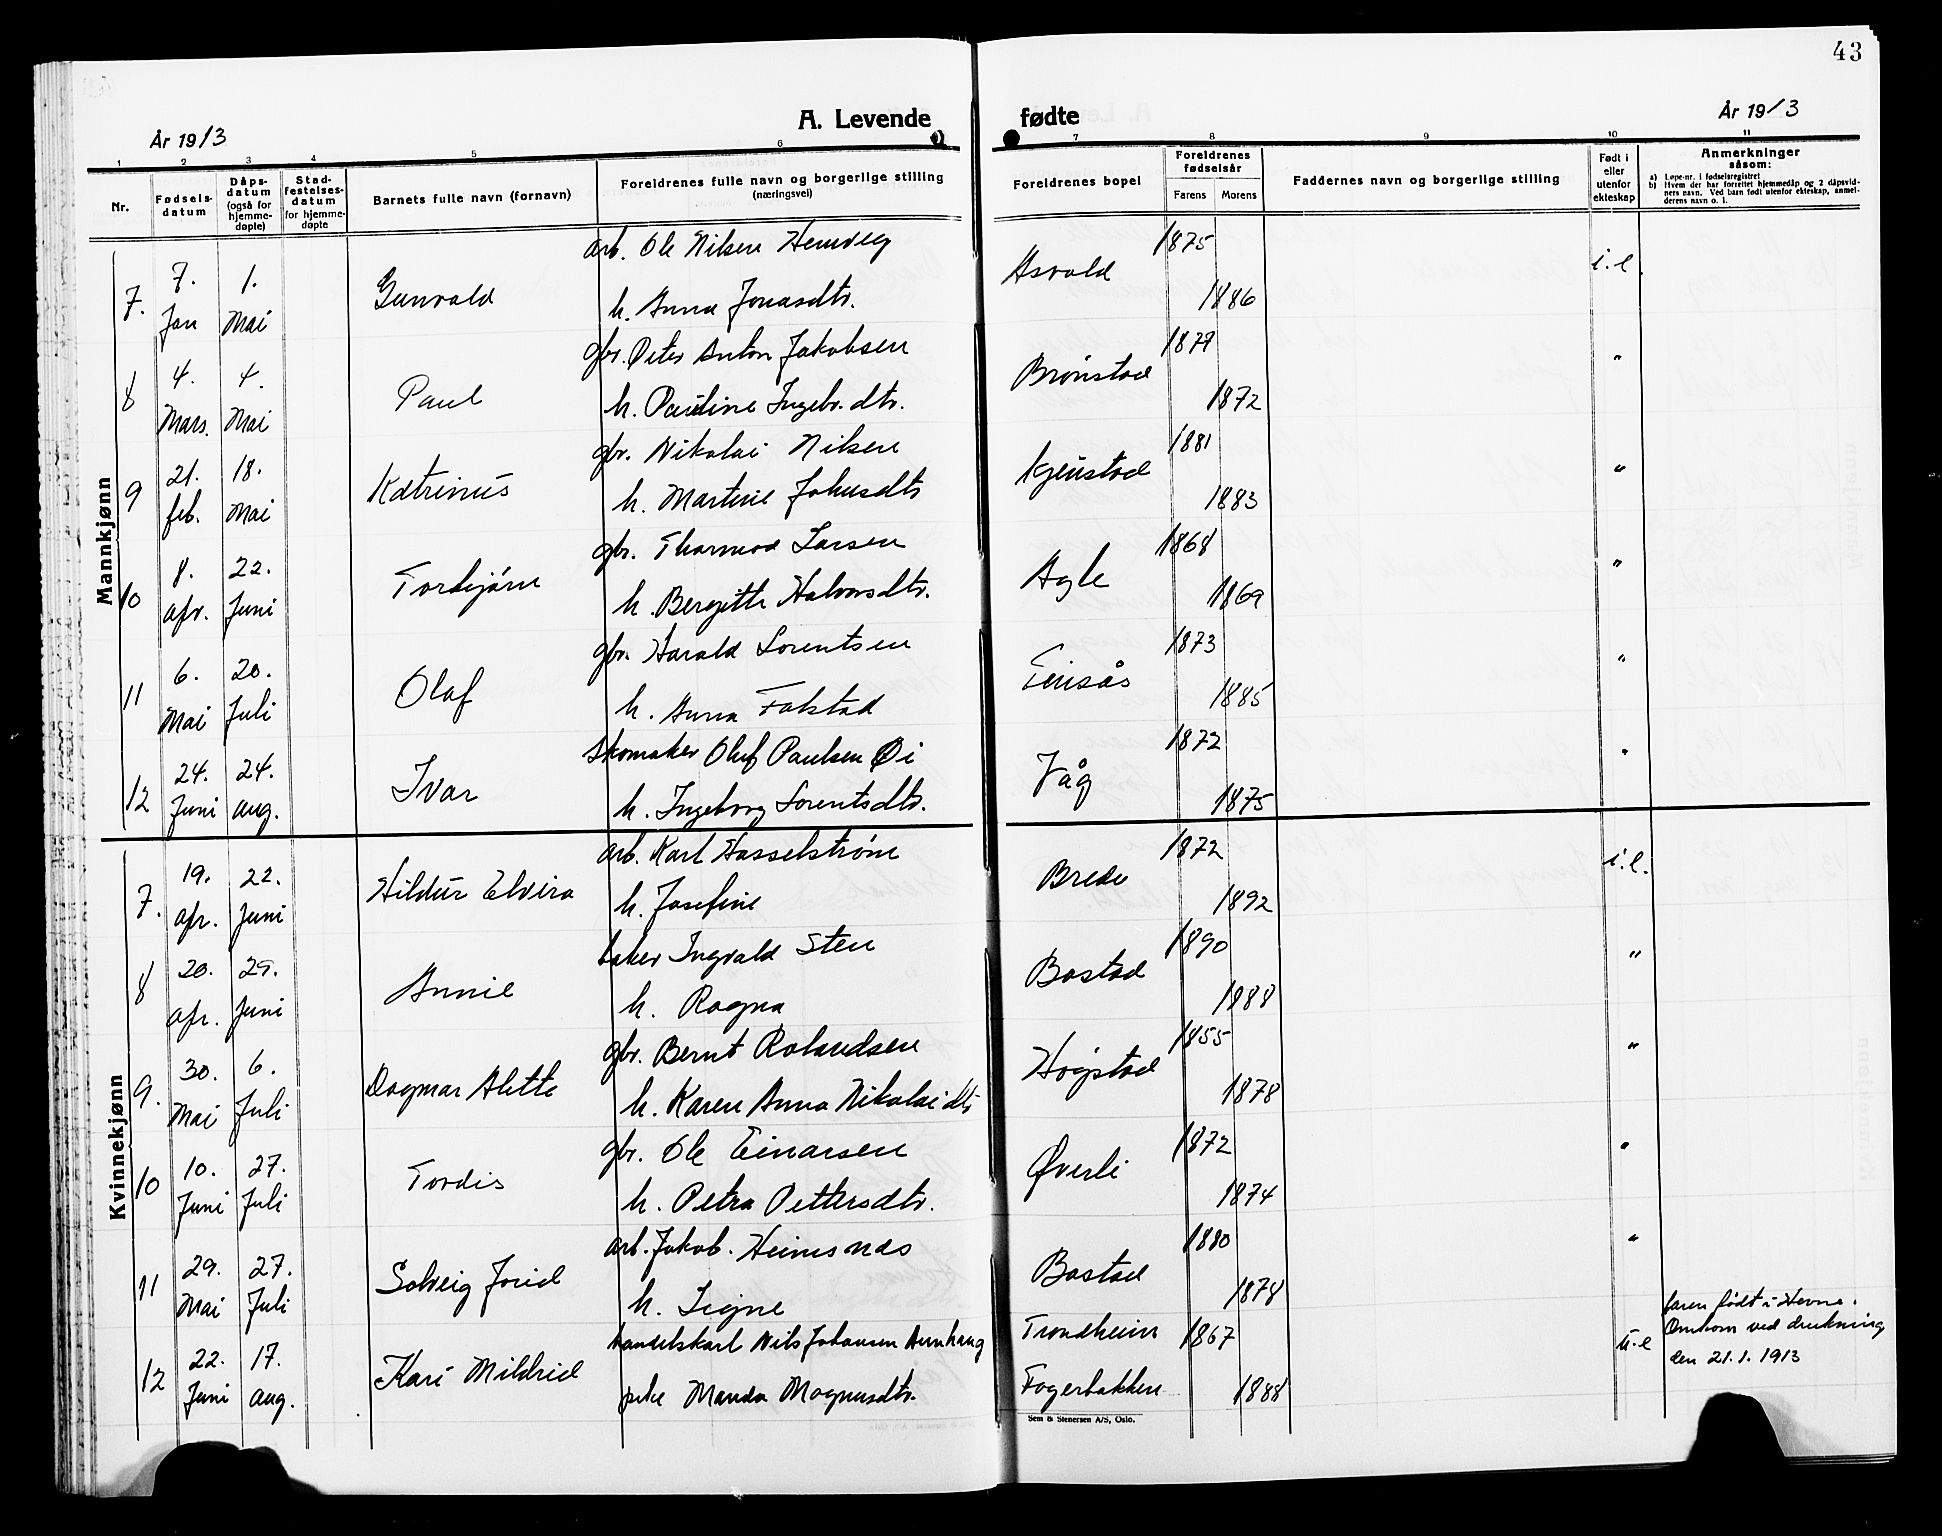 43
A. Levende fødte
År 1913
År 1913
1 2 3 4 5 6 7 8 9 10 11
Nr.
Fødsels-datum
Dåps-datum (også for hjemme-døpte)
Stad-festelses-datum for hjemme-døpte
Barnets fulle navn (fornavn)
Foreldrenes fulle navn og borgerlige stilling (næringsvei)
Foreldrenes bopel
Foreldrenes fødselsår
Farens Morens
Faddernes navn og borgerlige stilling
Født i eller utenfor ekteskap
Anmerkninger såsom:
a) Løpe-nr. i fødselsregistret
b) Hvem der har forrettet hjemmedåp og 2 dåpsvidners navn. Ved barn født utenfor ekteskap, anmelderens navn o. l.
Mannkjønn
7. 7. Jan 1. Mai Gunvald arb. Ole Nilsen Hemveg Asvold 1875 i.e.
h. Anna Jonasdtr. 1886
8 4. Mars. 4. Mai Paul gbr. Peter Anton Jakobsen Brønstad 1877 "
h. Pauline Ingebr.dtr. 1872
9 21. feb. 18. Mai Katrinus gbr. Nikolai Nilsen 1881 "
h. Martine Johnsdtr 1883
10 8. apr. 22. Juni Torbjørn gbr. Thormod Larsen Agle 1868 "
h. Bergitte Halvorsdtr. 1869
11 6. Mai 20. Juli Olaf gbr. Harald Lorentsen Finsås 1873 "
h. Anna Folstad 1885
12 24. Juni 24. aug. Ivar Skomaker Oluf Paulsen Øi Våg 1872 "
h. Ingeborg Lorentsdtr. 1875
Kvinnekjønn
7. 19. apr. 22. Juni Hildur Elvira arb. Karl Hasselstrøm Brede 1872 i.e.
h. Josefine 1892
8 20. apr. 29. Juni Annie baker Ingvald Sten Bostad 1890 "
h. Ragna 1888
9. 30. Mai 6. Juli Dagmar Alette gbr. Bernt Rolandsen Høgstad 1855 "
h. Karen Anna Nikolaidtr 1878
10 10. Juni 27. Juli Tordis gbr. Ole Einarsen Øverli 1872 "
h. Petra Pettersdtr. 1874
11 29. Mai 27. Juli Solveig Jorid arb. Jakob. Heimsnes Bostad 1880 "
h. Signe 1878
12 22. Juni 17. aug. Kari Mildrid handelskarl Nils Johansen Aunhaug Trondheim 1867 u.e faren født i Hevne.
Omkom ved drukning
den 21.1.1913
pike Manda Magnusdtr. Fagerbakken 1888
Sem & Stenersen A/S, Oslo.